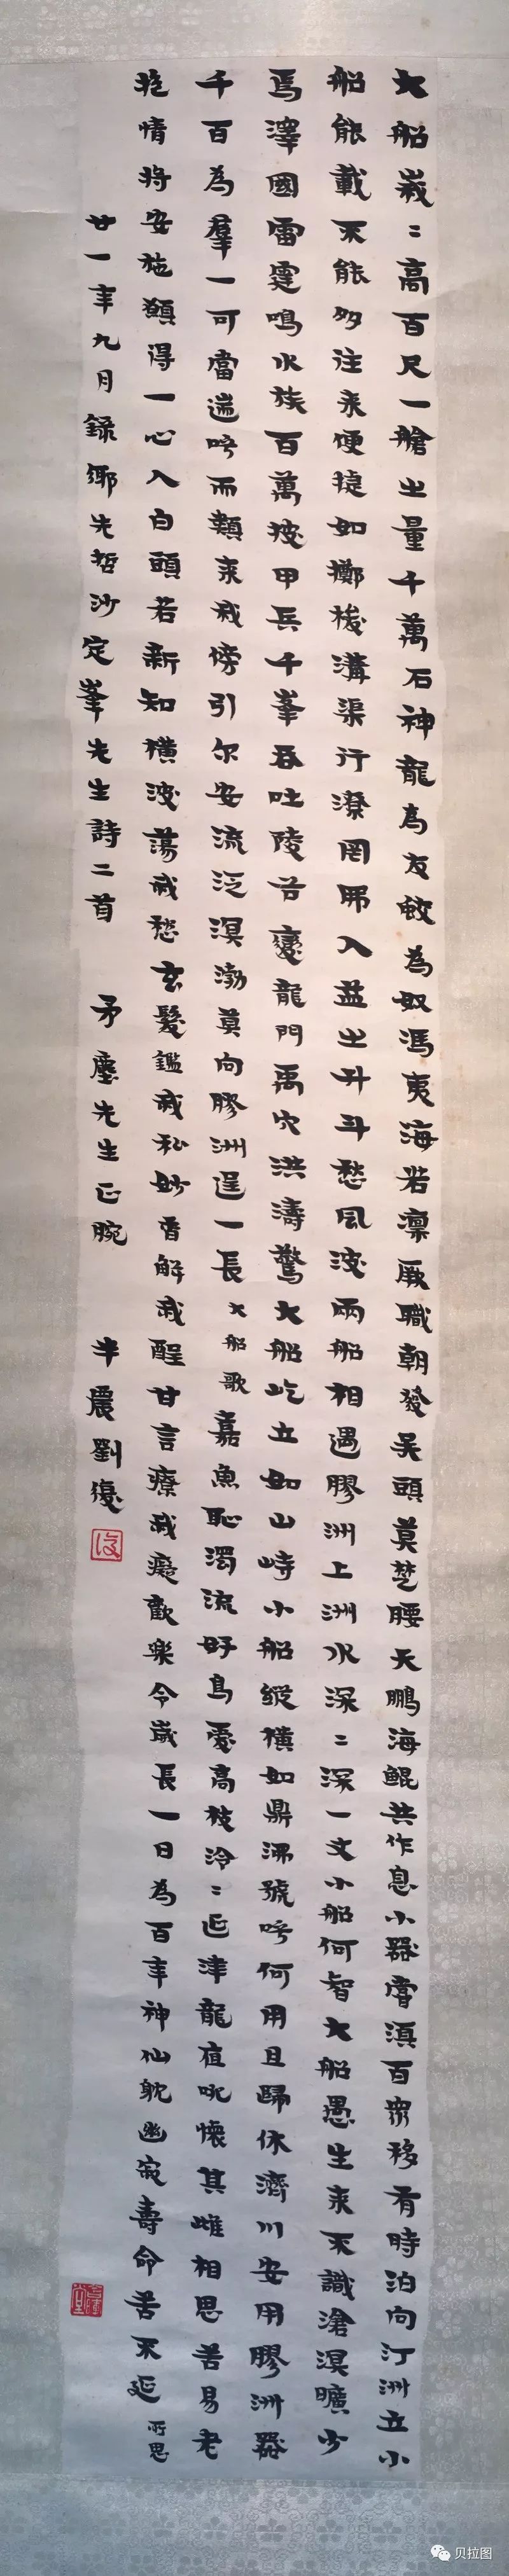 大船峩〻高百尺一艙之量千萬石神龍為友蛟為奴馮夷海若凛厥職朝發吴頭莫楚腰天鵬海鯤共作息小器胷溟百粥移有時泊向汀洲立小
船能載不能多往来便㨗如擲梭溝渠行潦罔弗入益之升斗愁風波兩船相遇膠洲上洲水深〻深一丈小船何智大船愚生来不識滄溟曠少
焉澤國雷霆鳴水族百萬披甲兵千峯吞吐陵谷變龍門禹穴洪濤驚大船屹立如山峙小船縱橫如鼎沸號呼何用且歸休濟川安用膠洲器
千百為羣一可當遄呼而類来我傍引尔安流泛溟渤莫向膠洲逞一長 大船歌 嘉魚恥濁流好鳥愛高枝泠〻延津龍夜吼懷其雌相思苦易老
抱情将安施願得一心人白頭若新知橫波蕩我愁玄髮鑑我私妙香解我酲甘言療我癡歡樂令歲長一日為百年神仙躭幽寂壽命苦不延 所思
廿一年九月録鄉先哲沙定峯先生詩二首 矛塵先生正腕 半農劉復
復
貝拉图